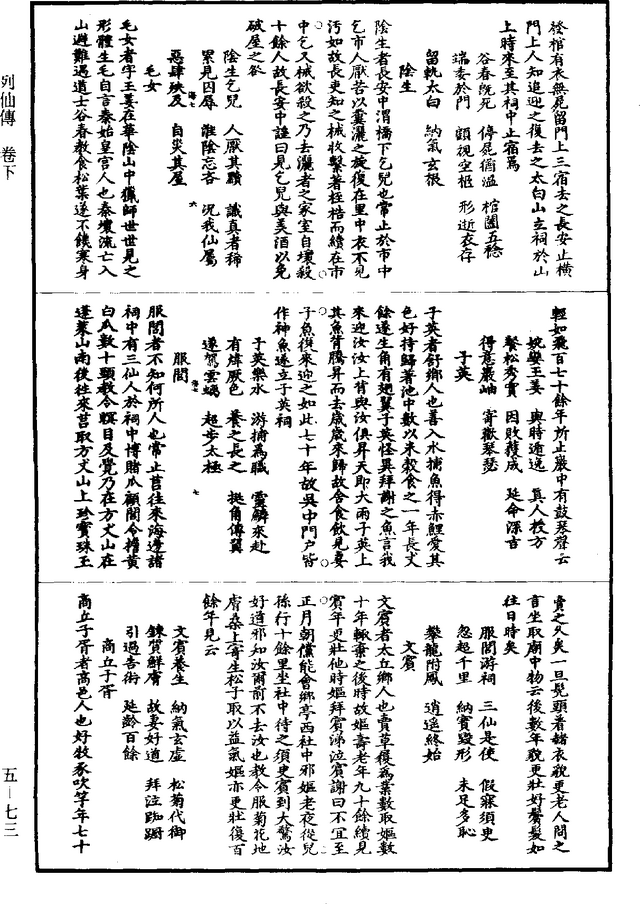 發棺有衣無屍留門上三宿去之長安止橫
門上人知追迎之復去之太白山立祠於山
上時來至其祠中止宿焉
谷春既死　停屍猶溫　棺闔五稔
端委於門　顧視空柩　形逝衣存
留軌太白　納氣玄根
陰生
陰生者長安中渭橋下乞兒也常止於市中
乞市人厭苦以糞灑之旋復在里中衣不見
污如故長吏知之械收繫著桎梏而續在市
中乞又械欲殺之乃去灑者之家室自壞殺
十餘人故長安中謠曰見乞兒與美酒以免
破屋之咎
陰生乞兒　人厭其黷　識真者稀
累見囚辱　淮陰忘吝　況我仙屬
惡肆殃及　自災其屋
毛女
毛女者字玉姜在華陰山中獵師世世見之
形體生毛自言秦始皇宮人也秦壞流亡入
山避難遇道士谷春教食松葉遂不饑寒身
輕如飛百七十餘年所止巖中有鼓琴聲云
婉孌玉姜　與時遁逸　真人授方
餐松秀實　因敗獲成　延命深吉
得意巖岫　寄歡琴瑟
子英
子英者舒鄉人也善入水捕魚得赤鯉愛其
色好持歸著池中數以米穀食之一年長丈
餘遂生角有翅翼子英怪異拜謝之魚言我
來迎汝汝上背與汝俱昇天即大雨子英上
其魚背騰昇而去歲歲來歸故舍食飲見妻
子魚復來迎之如此七十年故吳中門戶皆
作神魚遂立子英祠
子英樂水　游捕為職　靈鱗來赴
有煒厥色　養之長之　挺角傅翼
遂駕雲螭　超步太極
服閭
服閭者不知何所人也常止莒往來海邊諸
祠中有三仙人於祠中博賭瓜顧閭令擔黃
白瓜數十頭教令瞑目及覺乃在方丈山在
蓬萊山南後往來莒取方丈山上珍寶珠玉
賣之久矣一旦髡頭著赭衣貌更老人問之
言坐取廟中物云後數年貌更壯好鬢髮如
往日時矣
服閭游祠　三仙是使　假寐須臾
忽超千里　納寶毀形　未足多恥
攀龍附鳳　逍遙終始
文賓
文賓者太丘鄉人也賣草履為業數取嫗數
十年輒棄之後時故嫗壽老年九十餘續見
賓年更壯他時嫗拜賓涕泣賓謝曰不宜至
正月朝儻能會鄉亭西社中邪嫗老夜從兒
孫行十餘里坐社中待之須臾賓到大驚汝
好道邪知汝爾前不去汝也教令服菊花地
膚桑上寄生松子取以益氣嫗亦更壯復百
餘年見云
文賓養生　納氣玄虛　松菊代御
鍊質鮮膚　故妻好道　拜泣踟躕
引過告術　延齡百餘
商丘子胥
商丘子胥者高邑人也好牧豕吹竽年七十
列仙傳　卷下
五－七三